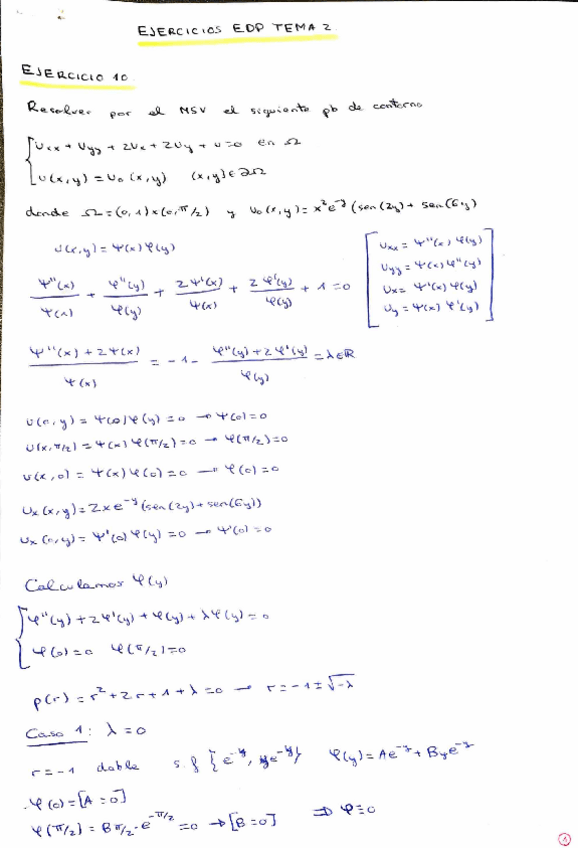 EJERCICIOS EDP TEMA 2
EJERCICIO 10
Resolver por el MSV el siguiente pb de contorno
{ Uxx + Uyy + 2Ux + 2Uy + u = 0 en Ω
u(x,y) = U₀(x,y) (x,y) ∈ ∂Ω
donde Ω = (0,1)×(0,π/2) y U₀(x,y) = x²e^-y (sen(2y) + sen(6y))
u(x,y) = Ψ(x)φ(y)
Ψ''(x)/Ψ(x) + φ''(y)/φ(y) + 2Ψ'(x)/Ψ(x) + 2φ'(y)/φ(y) + 1 = 0
[ Uxx = Ψ''(x) φ(y)
Uyy = Ψ(x) φ''(y)
Ux = Ψ'(x) φ(y)
Uy = Ψ(x) φ'(y) ]
Ψ''(x) + 2Ψ(x) / Ψ(x) = -1 - φ''(y) + 2φ'(y) / φ(y) = λ ∈ ℝ
u(0,y) = Ψ(0)φ(y) = 0 → Ψ(0) = 0
u(x,π/2) = Ψ(x)φ(π/2) = 0 → φ(π/2) = 0
u(x,0) = Ψ(x)φ(0) = 0 → φ(0) = 0
Ux(x,y) = 2xe^-y (sen(2y) + sen(6y))
Ux(0,y) = Ψ'(0)φ(y) = 0 → Ψ'(0) = 0
Calculamos φ(y)
{ φ''(y) + 2φ'(y) + φ(y) + λφ(y) = 0
φ(0) = 0 φ(π/2) = 0
p(r) = r² + 2r + 1 + λ = 0 → r = -1 ± √-λ
Caso 1: λ = 0
r = -1 doble s.f {e^-y, ye^-y} φ(y) = Ae^-y + Bye^-y
φ(0) = [A = 0]
φ(π/2) = Bπ/2 · e^-π/2 = 0 → [B = 0] ⇒ φ ≡ 0
1